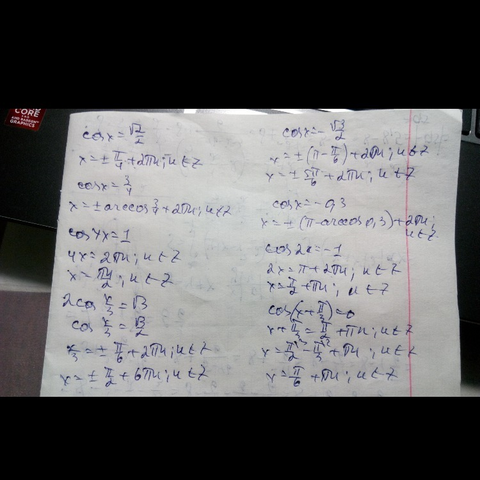 CORE
cosx = √2/2
x = ± π/4 + 2πn; n ∈ Z
cosx = 3/4
x = ± arccos 3/4 + 2πn; n ∈ Z
cos4x = 1
4x = 2πn; n ∈ Z
x = πn/2; n ∈ Z
2cos x/3 = √3
cos x/3 = √3/2
x/3 = ± π/6 + 2πn; n ∈ Z
x = ± π/2 + 6πn; n ∈ Z
cosx = - √3/2
x = ± (π - π/6) + 2πn; n ∈ Z
x = ± 5π/6 + 2πn; n ∈ Z
cosx = - 0,3
x = ± (π - arccos 0,3) + 2πn;
n ∈ Z
cos2x = -1
2x = π + 2πn; n ∈ Z
x = π/2 + πn; n ∈ Z
cos(x + π/3) = 0
x + π/3 = π/2 + πn; n ∈ Z
x = π/2 - π/3 + πn; n ∈ Z
x = π/6 + πn; n ∈ Z